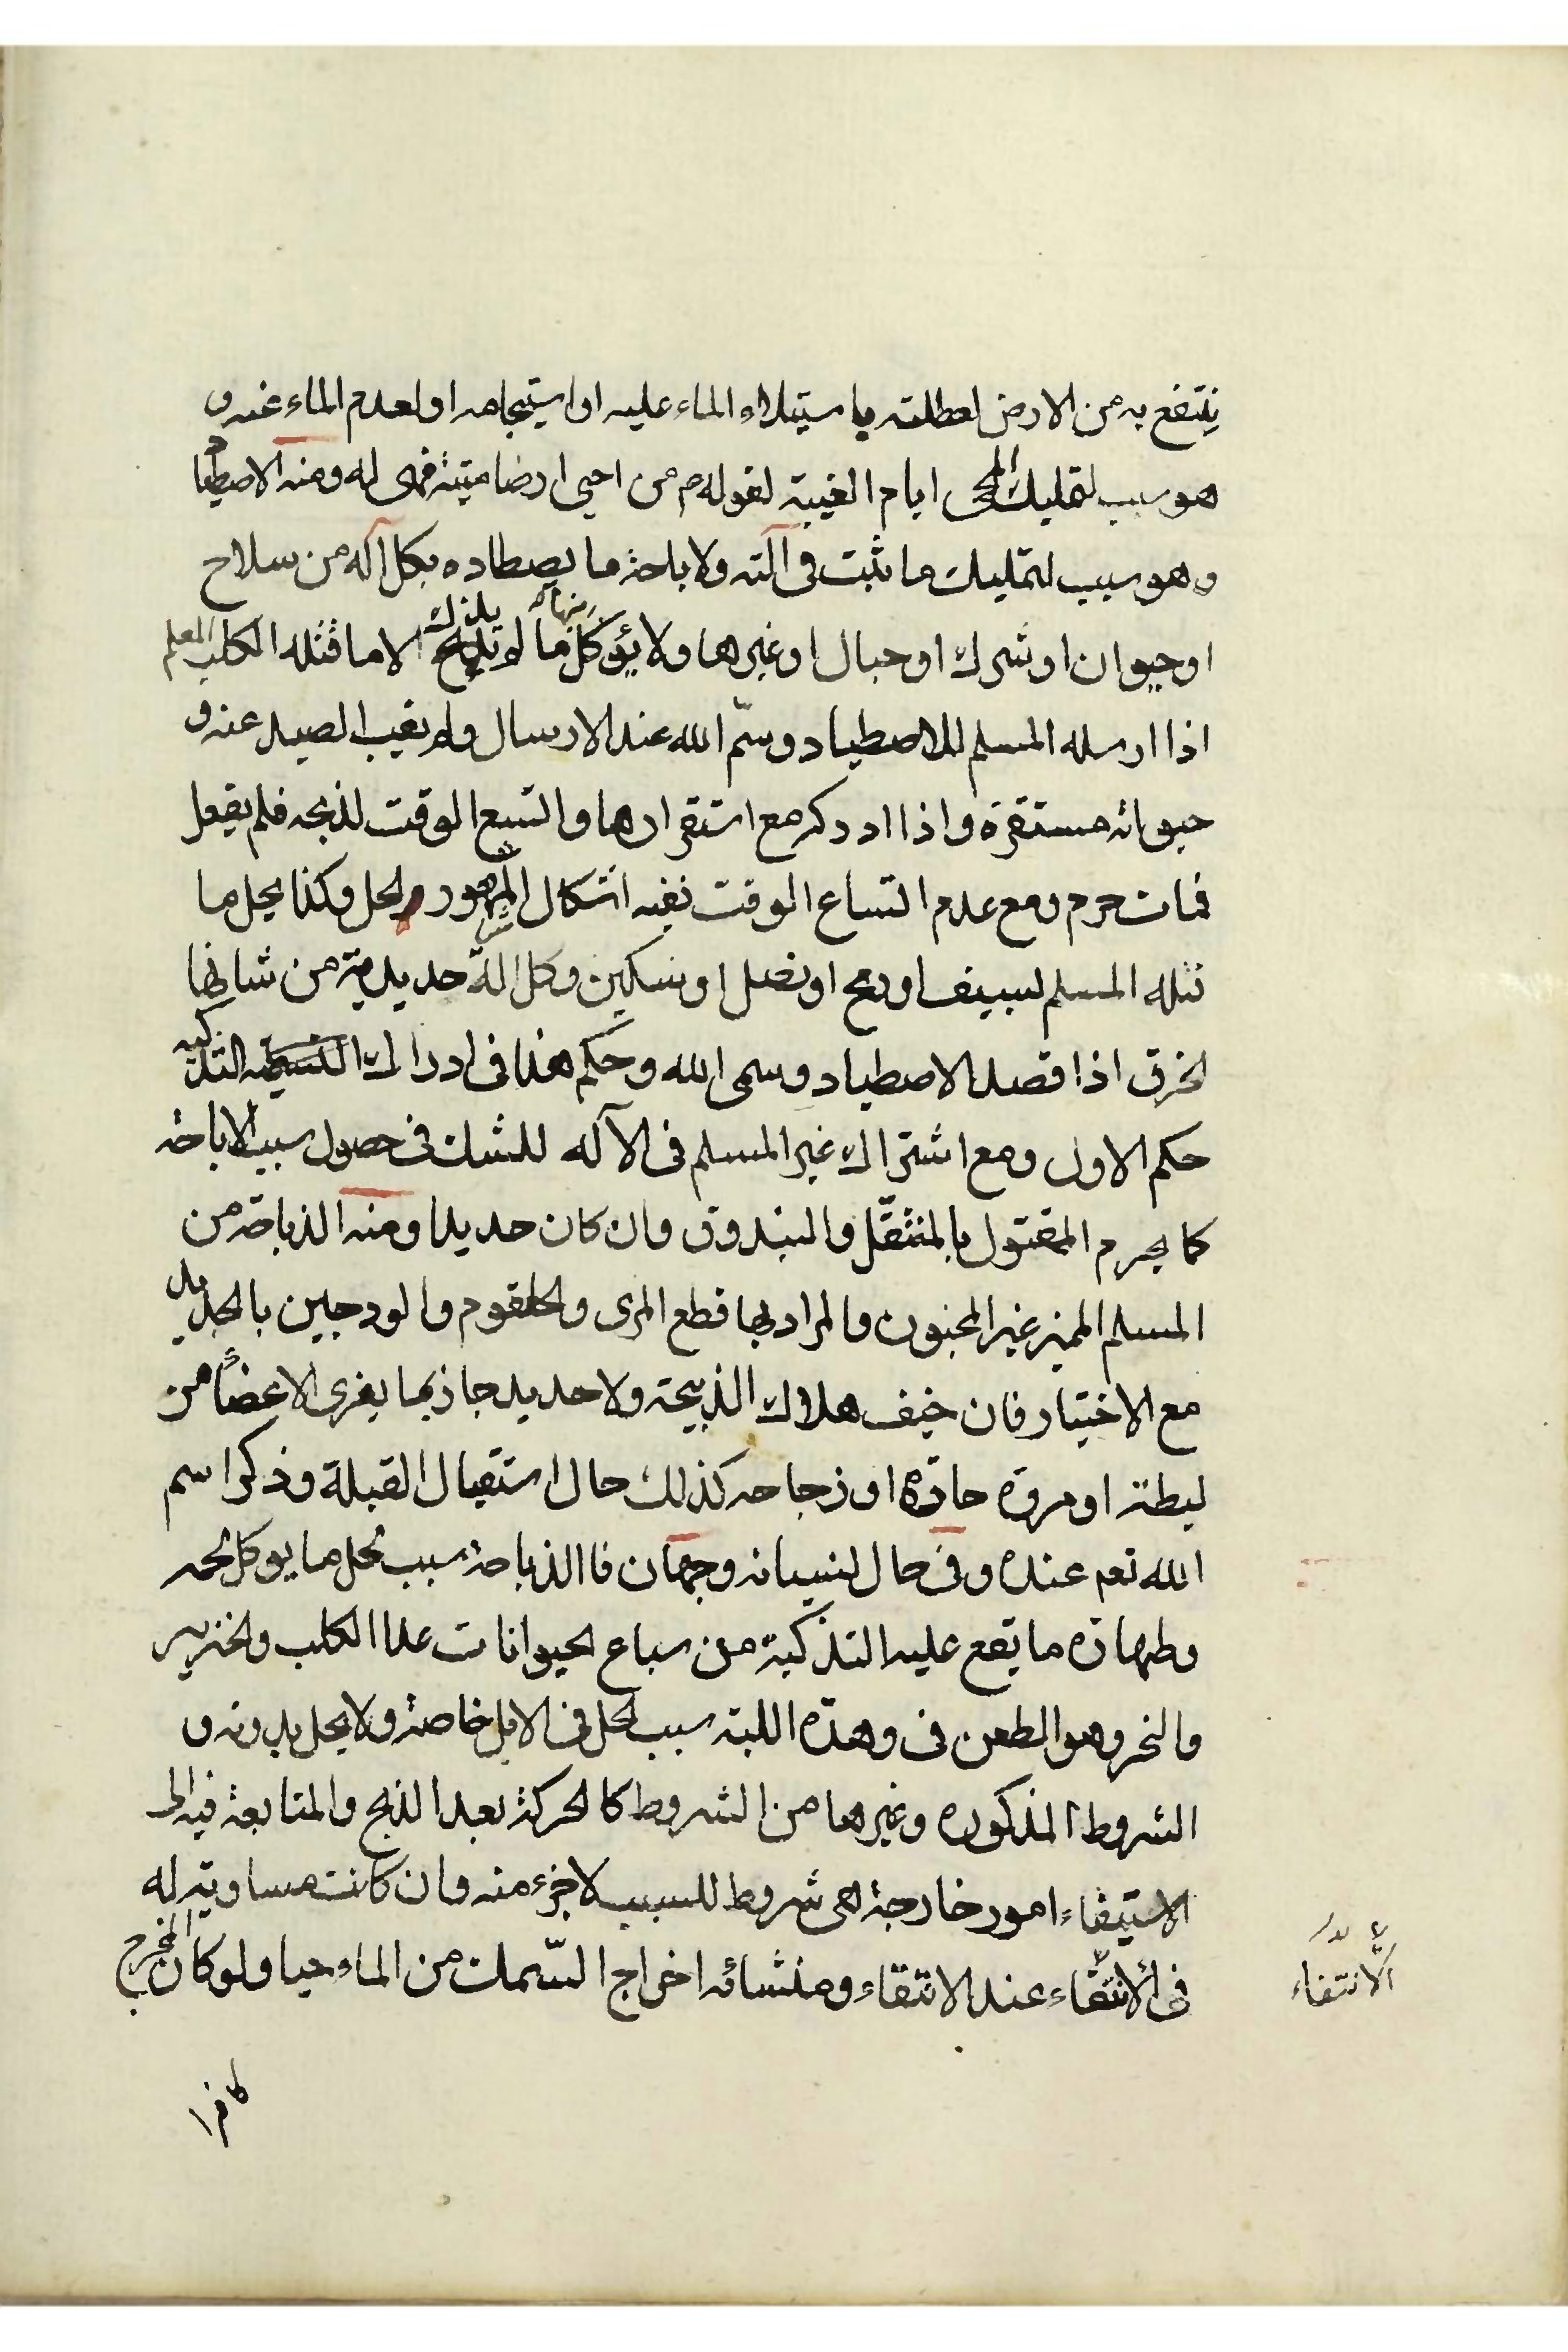 ينتفع به من الارض لعطلته باستيلاء الماء عليه او استيجامه او لعدم الماء عنه و
هو سبب لتمليك المحي ايام الغيبة لقوله م من احيى ارضا ميتة فهى له ومنه الاصطياد
وهو سبب لتمليك ما ثبت فى آلته ولا باحة ما يصطاده بكل آلة من سلاح
او حيوان او شرك او حبال او غيرها ولا يؤكل منها ما لم يذك الا ما قتله الكلب المعلم
اذا ارسله المسلم للاصطياد وسمّ الله عند الارسال ولم يغيب الصيد عنه و
حيوته مستقرة واذا ادركه مع استقرارها واتسع الوقت لذبحه فلم يفعل
فمات حرم ومع عدم اتساع الوقت نفيه اشكال المشهور الحل وكذا يحل ما
قتله المسلم لسيف او رمح او نصل او سكين وكل الة حديدية من شانها
الخرق اذا قصد الاصطياد وسمى الله وحكم هذا فى ادراك التذكية
حكم الاول ومع اشتراك غير المسلم فى الآله للشك فى حصول سبب الاباحه
كما يحرم المقتول بالمثقّل والبندوق وان كان حديدا ومنه الذباحة من
المسلم المميز غير المجنون والمراد بها قطع المرى والحلقوم والودجين بالحديد
مع الاختيار فان خيف هلاك الذبيحة ولا حديد جاز بما يفرى الاعضاء من
ليطة او مروة حادّة او زجاجه كذلك حال استقبال القبلة وذكر اسم
الله تعم عنده وفى حال لنسيانه وجهان فاالذباحة سبب لحل ما يوكل لحمه
وطهارة ما يقع عليه التذكية من سباع الحيوانات عدا الكلب والخنزير
والنحر وهو الطعن فى وهدة اللبة سبب الحل فى الابل خاصة ولا يحل بدونه و
الشروط المذكوره وغيرها من الشروط كالحركة بعد الذبح والمتابعة فيه الى
الاستيفاء امور خارجة هى شروط للسبب لا جزء منه وان كانت مساوية له
فى الانتفاء عند الانتفاء ومنشائه اخراج السّمك من الماء حيا ولو كان المخرج
الانتفاء
كافرا